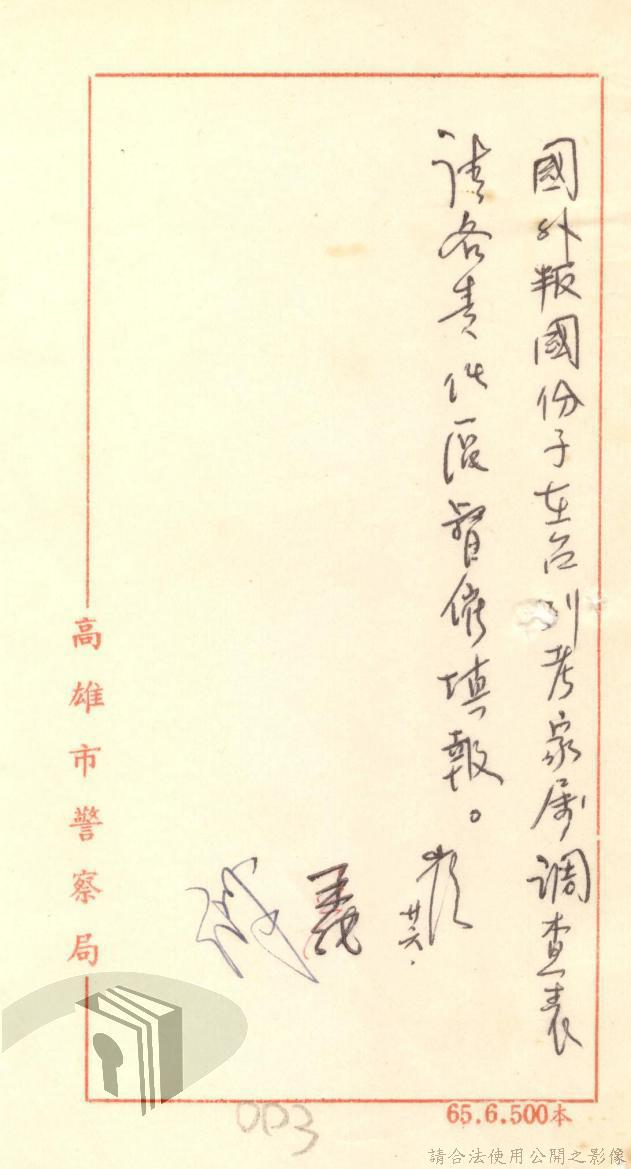 國外叛國份子在台列考家属調查表
請各責任區督催填報。
廿六.
高雄市警察局
003
65.6.500本
請合法使用公開之影像